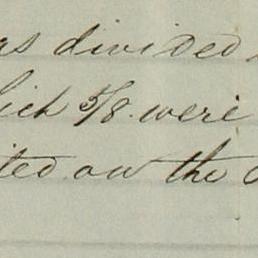 as divided
hich 5/8. were
ited on the